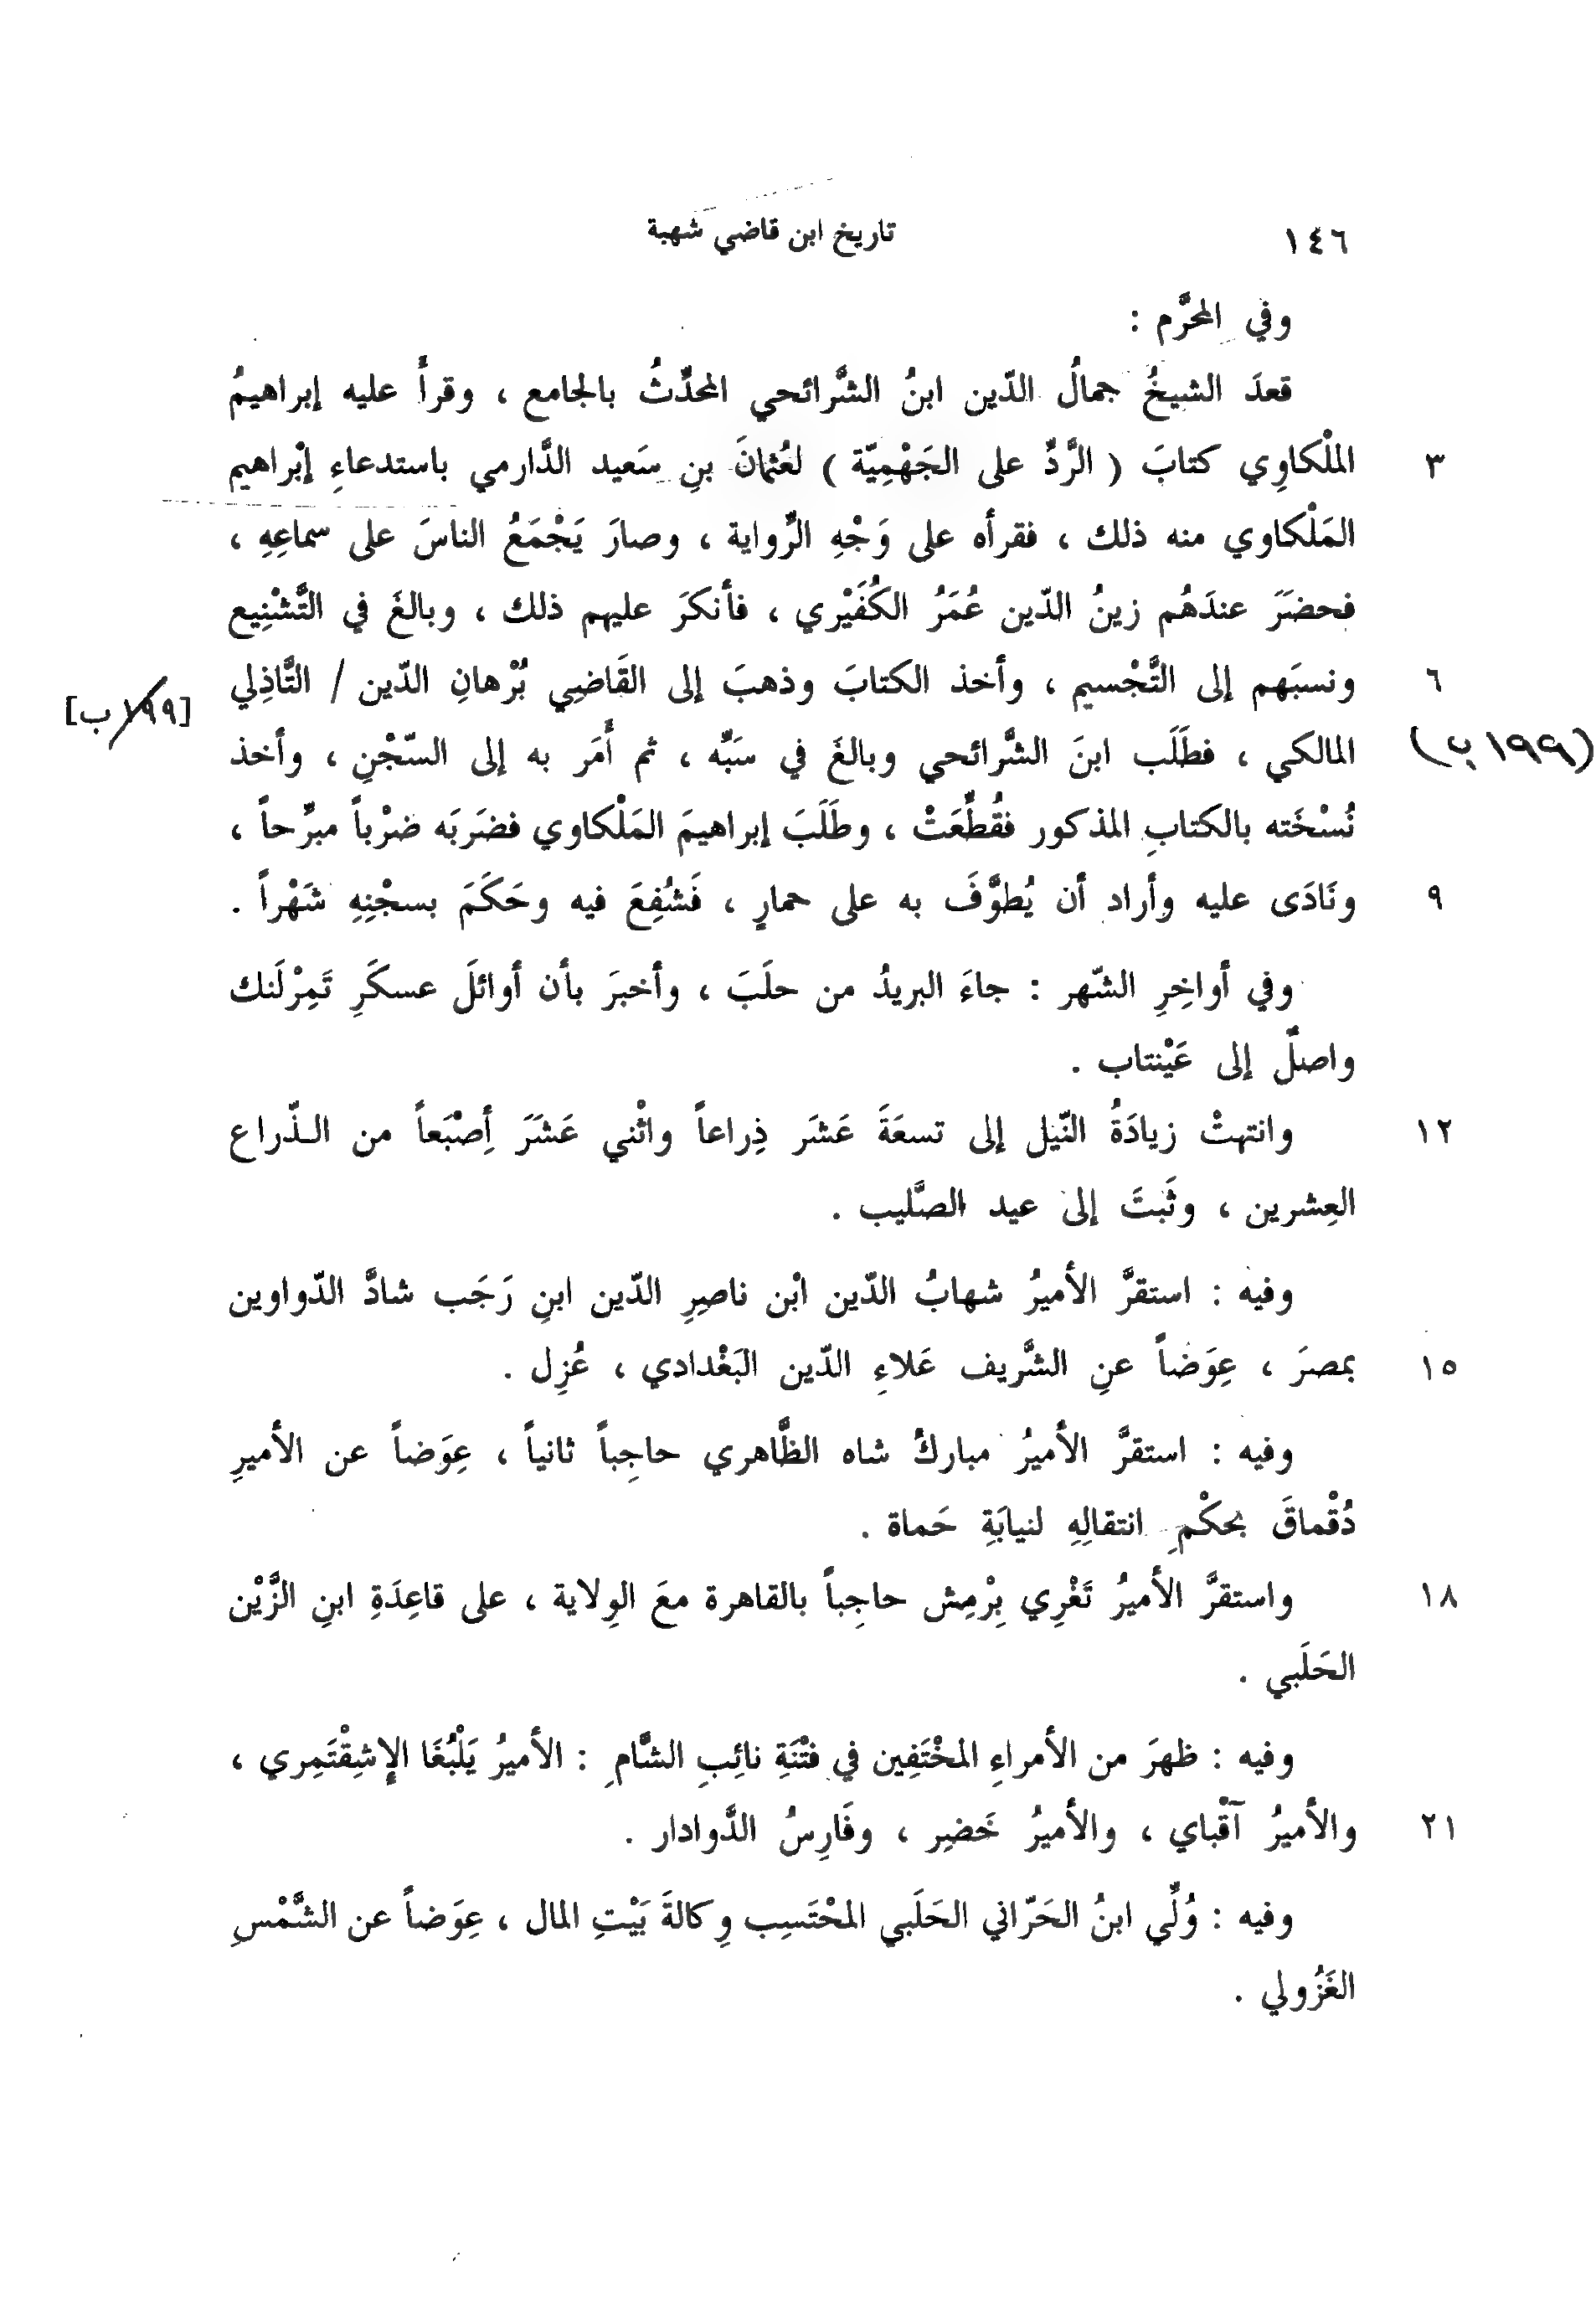 ١٤٦
تاريخ ابن قاضي شهبة
وفي المحرَّم :
قعدَ الشيخُ جمالُ الدّين ابنُ الشَّرائحي المحدِّثُ بالجامع ، وقرأَ عليه إبراهيمُ
٣ الملْكاوِي كتابَ ( الرَّدِّ على الجَهْمِيّة ) لعُثمانَ بنِ سَعيد الدَّارمي باستدعاءِ إبْراهيم
المَلْكاوي منه ذلك ، فقرأه على وَجْهِ الرِّواية ، وصارَ يَجْمَعُ الناسَ على سماعِهِ ،
فحضَرَ عندَهُم زينُ الدّين عُمَرُ الكُفَيْري ، فأنكرَ عليهم ذلك ، وبالغَ في التَّشْنِيع
٦ ونسبَهم إلى التَّجْسيم ، وأخذ الكتابَ وذهبَ إلى القَاضِي بُرْهانِ الدّين / التَّاذِلي
[١٩٩ ب]
(١٩٩ ب)
المالكي ، فطَلَب ابنَ الشَّرائحي وبالغَ في سَبِّه ، ثم أَمَر به إلى السّجْنِ ، وأخذ
نُسْخَته بالكتابِ المذكور فقُطِّعَتْ ، وطَلَبَ إبراهيمَ المَلْكاوي فضَربَه ضرْباً مبرِّحاً ،
٩ ونَادَى عليه وأراد أن يُطوَّفَ به على حمارٍ ، فَشُفِعَ فيه وحَكَمَ بسجْنِهِ شَهْراً .
وفي أواخِرِ الشّهر : جاءَ البريدُ من حلَبَ ، وأخبرَ بأن أوائلَ عسكَرِ تَمِرْلَنك
واصلٌ إلى عَيْنتاب .
١٢ وانتهتْ زيادَةُ النّيل إلى تسعَةَ عَشَر ذِراعاً واثْني عَشَرَ أِصْبَعاً من الـذّراع
العِشرين ، وثَبتَ إلى عيد الصَّليب .
وفيه : استقرَّ الأميرُ شهابُ الدّين ابْن ناصِرِ الدّين ابنِ رَجَب شادَّ الدّواوين
١٥ بمصرَ ، عِوَضاً عنِ الشَّريف عَلاءِ الدّين البَغْدادي ، عُزِل .
وفيه : استقرَّ الأميرُ مباركُ شاه الظَّاهري حاجِباً ثانياً ، عِوَضاً عن الأميرِ
دُقْماقَ بحكْمِ انتقالِهِ لنيابَةِ حَماة .
١٨ واستقرَّ الأميرُ تَغْرِي بِرْمِش حاجِباً بالقاهرة معَ الوِلاية ، على قاعِدَةِ ابنِ الزَّيْن
الحَلَبي .
وفيه : ظهرَ من الأمراءِ المخْتَفِين في فتْنَةِ نائِبِ الشَّامِ : الأميرُ يَلْبُغَا الإشِقْتَمِري ،
٢١ والأميرُ آقْباي ، والأميرُ خَضِر ، وفَارِسُ الدَّوادار .
وفيه : وُلِّي ابنُ الحَرّاني الحَلَبي المحْتَسِب وِكالةَ بَيْتِ المال ، عِوَضاً عن الشَّمْسِ
الغَزُولي .